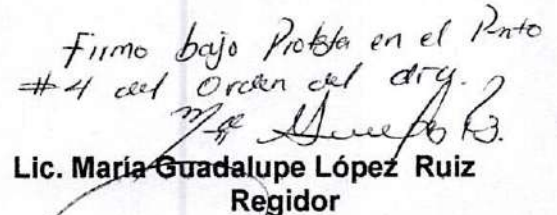 Firmo bajo Protesta en el Pnto
#4 del Orden del dia.
Lic. María Guadalupe López Ruiz
Regidor